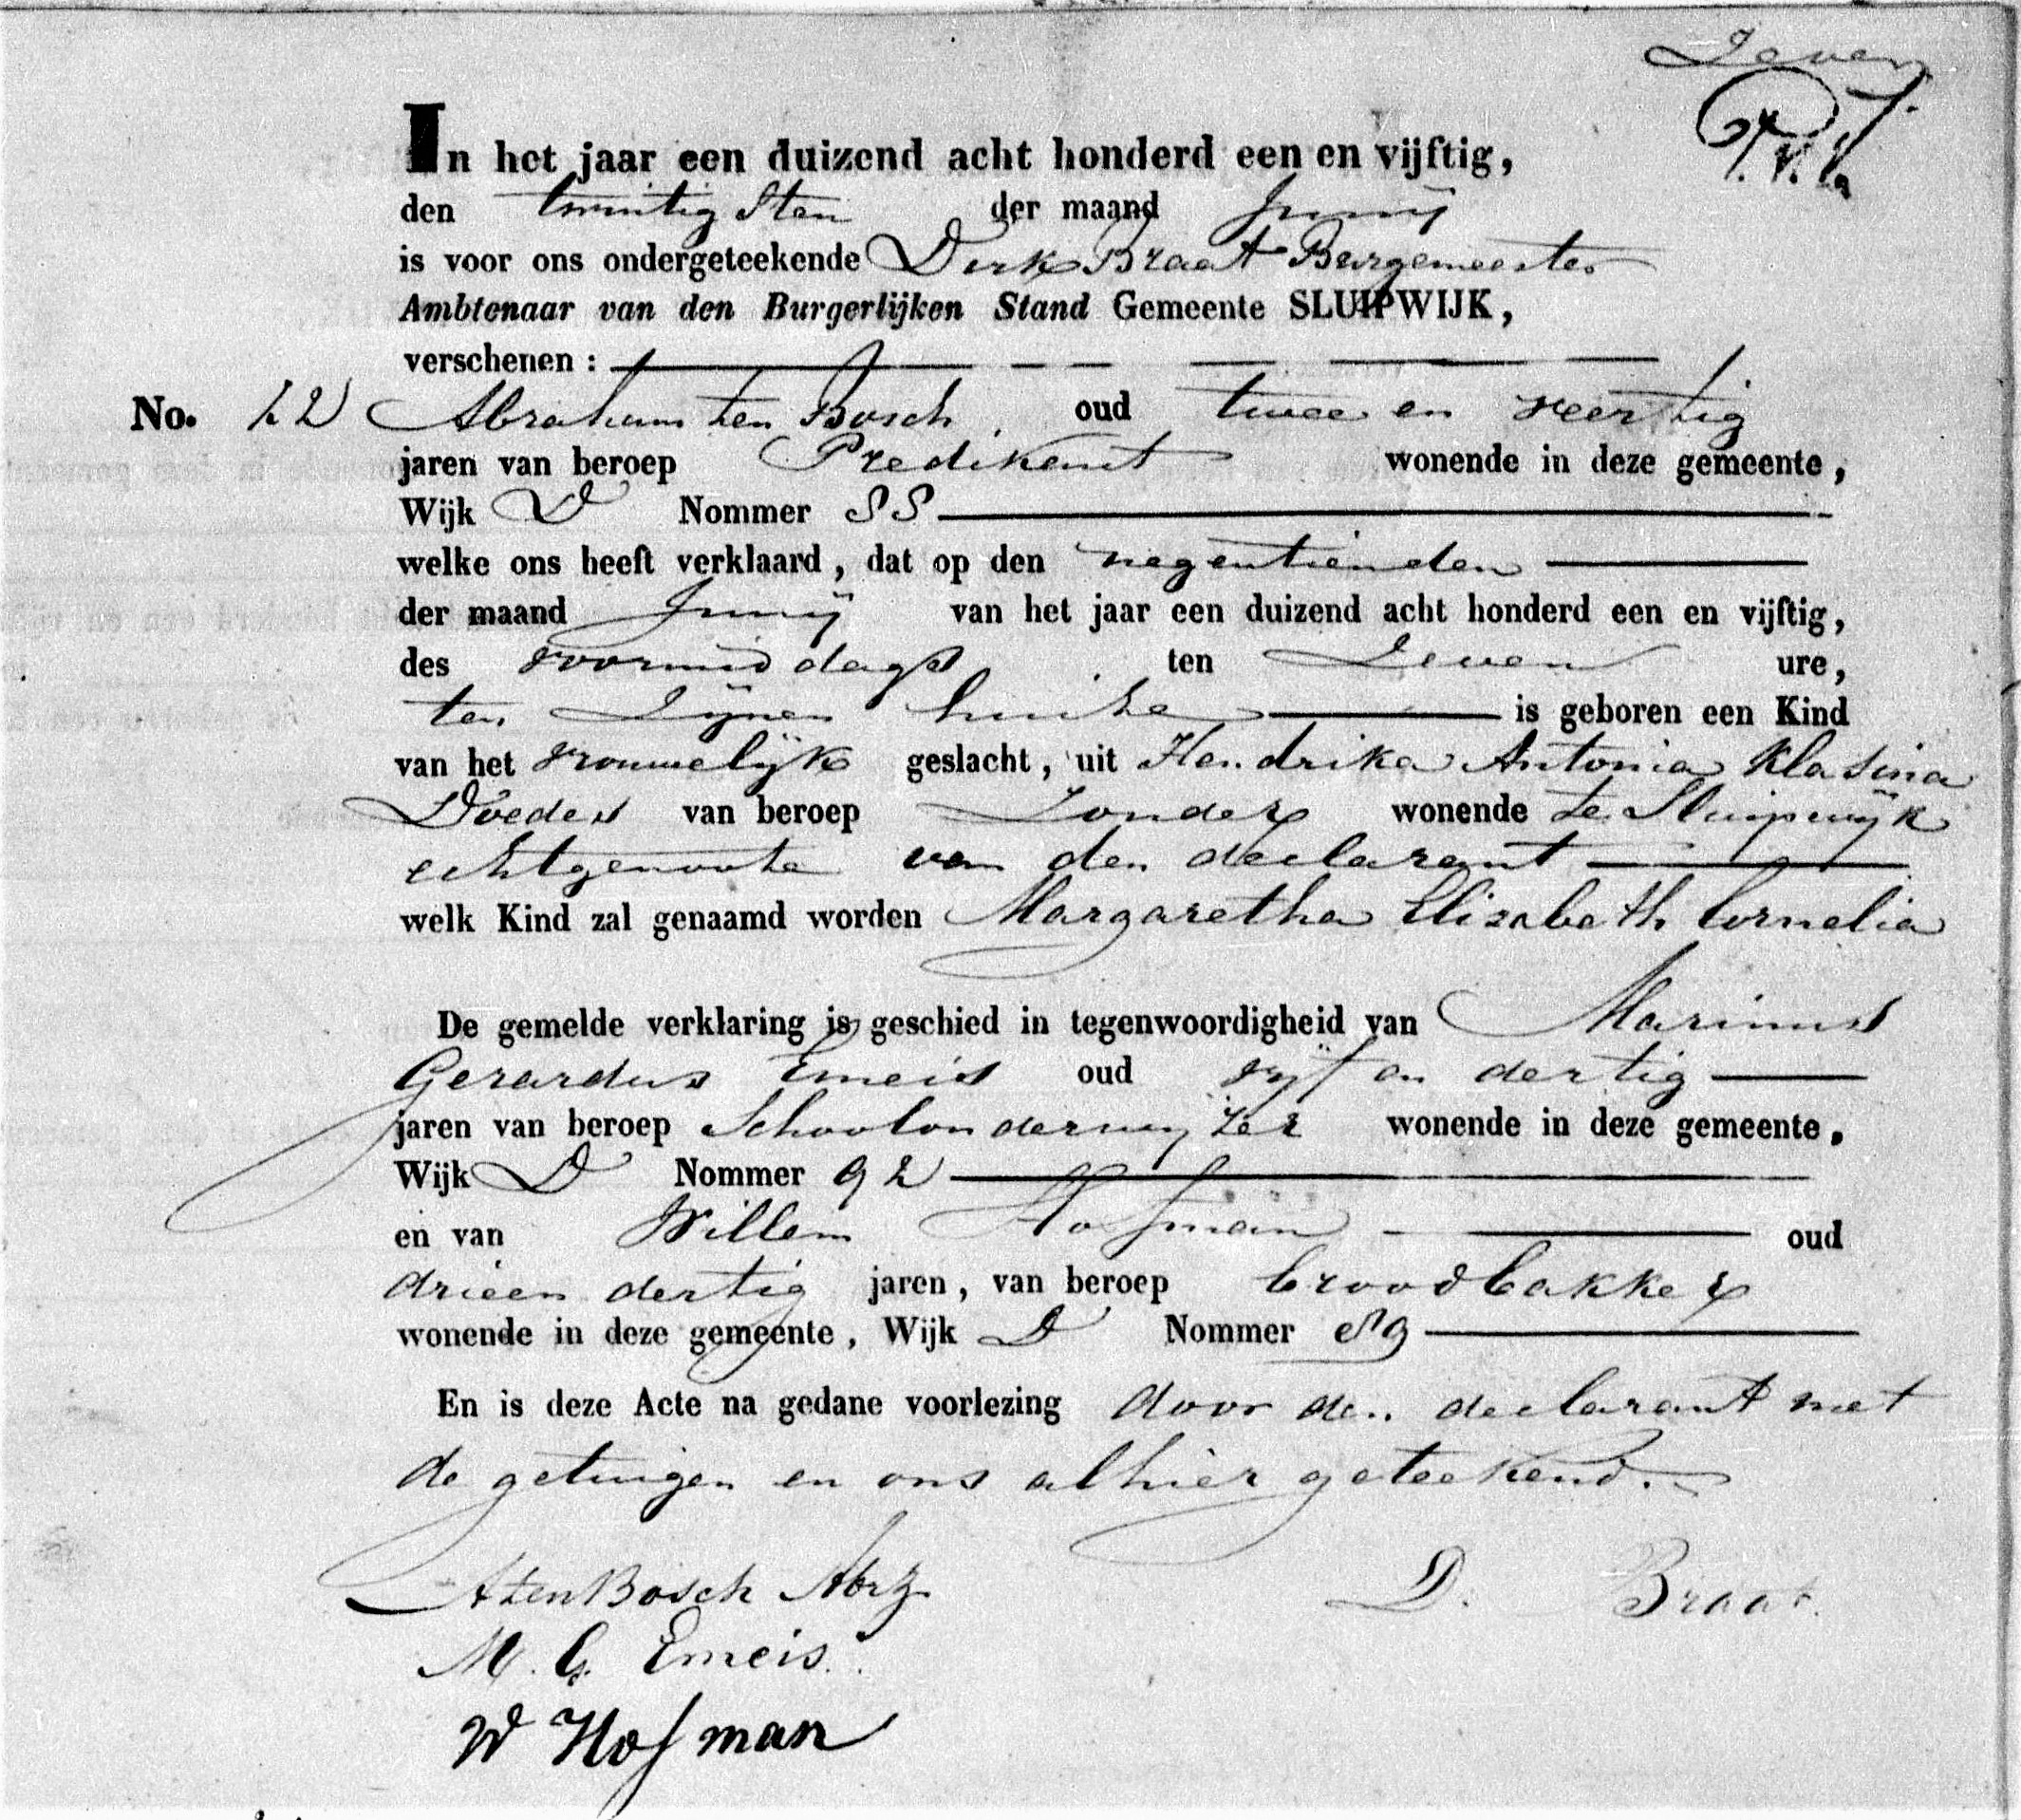 Zeven
In het jaar een duizend acht honderd een en vijftig,
den twintigsten der maand Junij
is voor ons ondergeteekende Dirk Braat Burgemeester
Ambtenaar van den Burgerlijken Stand Gemeente SLUIPWIJK,
verschenen :
No. 22 Abraham ten Bosch, oud twee en veertig
jaren van beroep Predikant wonende in deze gemeente,
Wijk D Nommer 88
welke ons heeft verklaard, dat op den negentienden
der maand Junij van het jaar een duizend acht honderd een en vijftig,
des voormiddags ten Zeven ure,
ten Zijnen huize is geboren een Kind
van het vrouwelijk geslacht, uit Hendrika Antonia Klasina
Doedes van beroep Zonder wonende te Sluipwijk
echtgenoote van den declarant
welk Kind zal genaamd worden Margaretha Elizabeth Cornelia
De gemelde verklaring is geschied in tegenwoordigheid van Marinus
Gerardus Emeis oud vijf en dertig
jaren van beroep Schoolonderwijzer wonende in deze gemeente,
Wijk D Nommer 92
en van Willem Hofman oud
drieen dertig jaren, van beroep broodbakker
wonende in deze gemeente, Wijk D Nommer 89
En is deze Acte na gedane voorlezing door den declarant met
de getuigen en ons alhier geteekend.
A ten Bosch Abrz D. Braat.
M. G. Emeis.
W Hofman